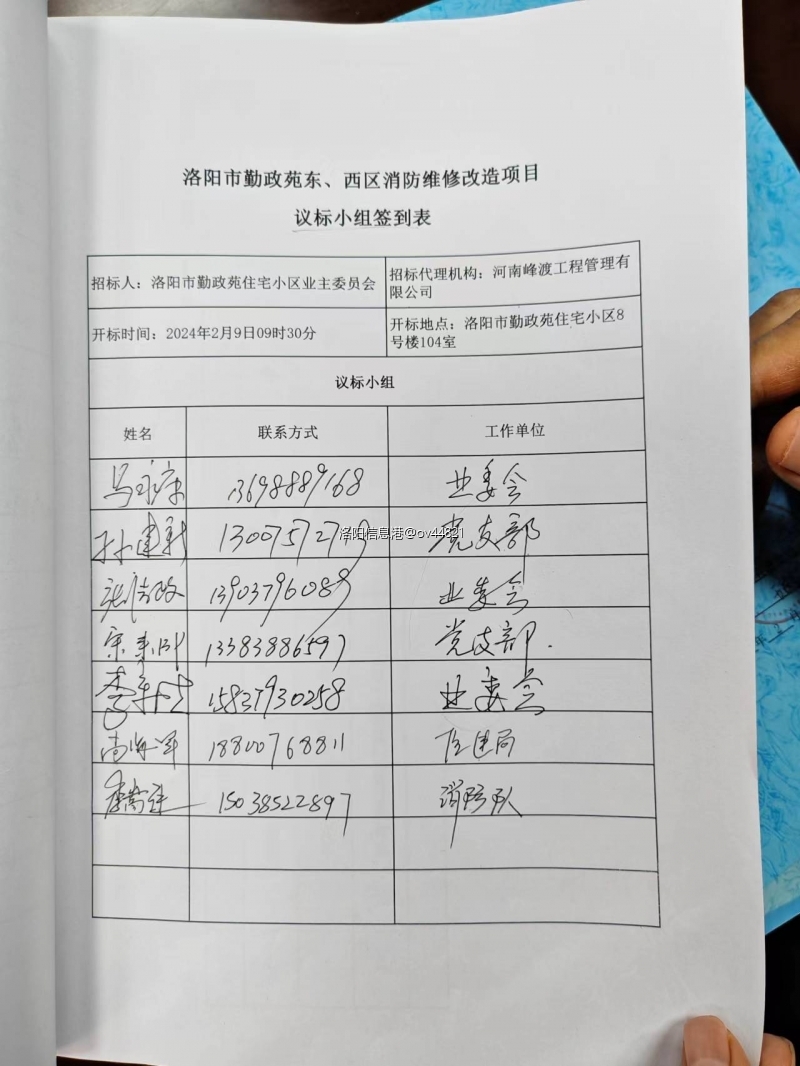 洛阳市勤政苑东、西区消防维修改造项目
议标小组签到表
招标人：洛阳市勤政苑住宅小区业主委员会
招标代理机构：河南峰渡工程管理有
限公司
开标时间：2024年2月9日09时30分
开标地点：洛阳市勤政苑住宅小区8
号楼104室
议标小组
姓名 联系方式 工作单位
13698889168 业委会
孙建新 党支部
洛阳信息港@ov44821
13903796089 业委会
13383886597 党支部.
15837930258 业委会
18800768811 住建局
15038522897 消防队